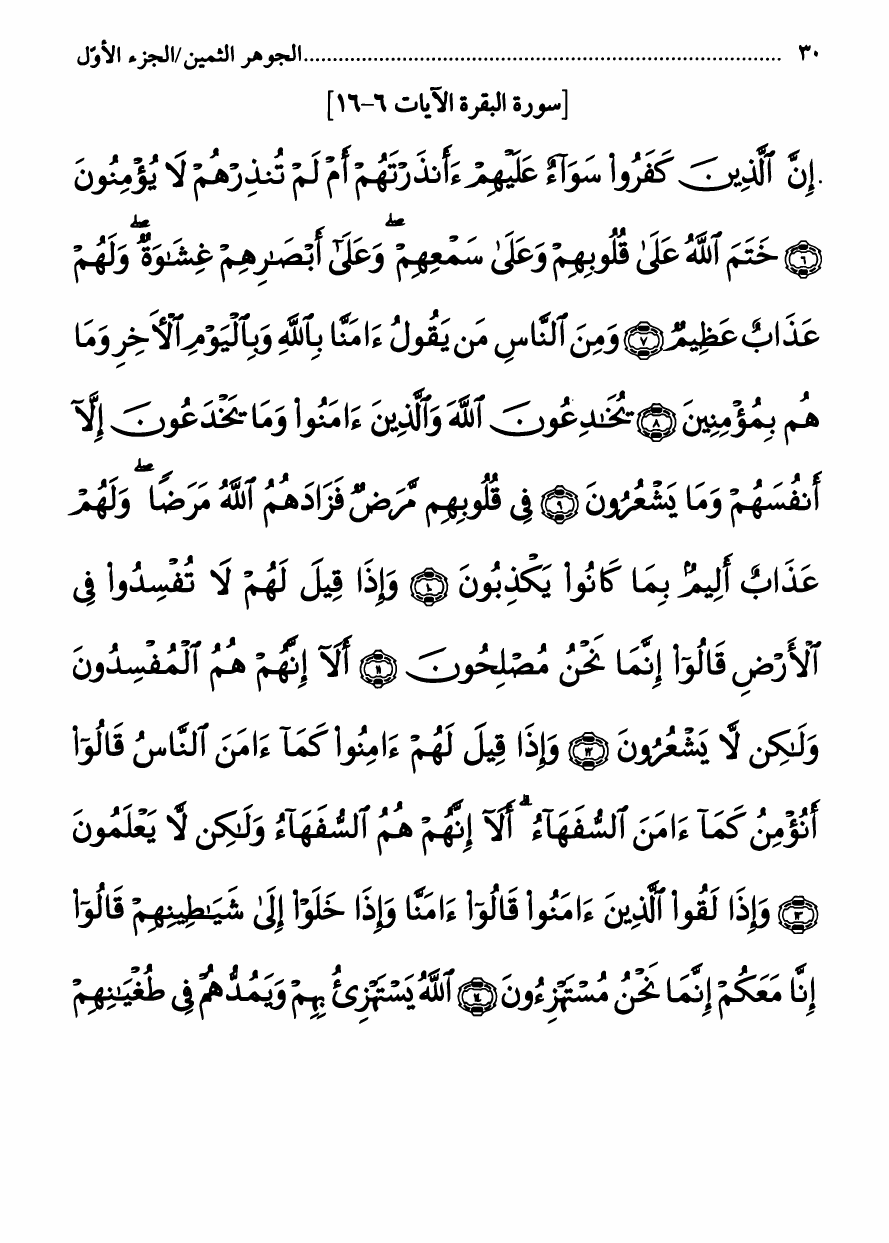 ٣٠ ........................................................................ الجوهر الثمين/الجزء الأوّل
[سورة البقرة الآيات ٦-١٦]
إِنَّ ٱلَّذِينَ كَفَرُوا۟ سَوَآءٌ عَلَيْهِمْ ءَأَنذَرْتَهُمْ أَمْ لَمْ تُنذِرْهُمْ لَا يُؤْمِنُونَ
٦ خَتَمَ ٱللَّهُ عَلَىٰ قُلُوبِهِمْ وَعَلَىٰ سَمْعِهِمْ ۖ وَعَلَىٰٓ أَبْصَـٰرِهِمْ غِشَـٰوَةٌ ۖ وَلَهُمْ
عَذَابٌ عَظِيمٌ ٧ وَمِنَ ٱلنَّاسِ مَن يَقُولُ ءَامَنَّا بِٱللَّهِ وَبِٱلْيَوْمِ ٱلْأَخِرِ وَمَا
هُم بِمُؤْمِنِينَ ٨ يُخَـٰدِعُونَ ٱللَّهَ وَٱلَّذِينَ ءَامَنُوا۟ وَمَا يَخْدَعُونَ إِلَّآ
أَنفُسَهُمْ وَمَا يَشْعُرُونَ ٩ فِى قُلُوبِهِم مَّرَضٌ فَزَادَهُمُ ٱللَّهُ مَرَضًا ۖ وَلَهُمْ
عَذَابٌ أَلِيمٌۢ بِمَا كَانُوا۟ يَكْذِبُونَ ١٠ وَإِذَا قِيلَ لَهُمْ لَا تُفْسِدُوا۟ فِى
ٱلْأَرْضِ قَالُوٓا۟ إِنَّمَا نَحْنُ مُصْلِحُونَ ١١ أَلَآ إِنَّهُمْ هُمُ ٱلْمُفْسِدُونَ
وَلَـٰكِن لَّا يَشْعُرُونَ ١٢ وَإِذَا قِيلَ لَهُمْ ءَامِنُوا۟ كَمَآ ءَامَنَ ٱلنَّاسُ قَالُوٓا۟
أَنُؤْمِنُ كَمَآ ءَامَنَ ٱلسُّفَهَآءُ ۗ أَلَآ إِنَّهُمْ هُمُ ٱلسُّفَهَآءُ وَلَـٰكِن لَّا يَعْلَمُونَ
١٣ وَإِذَا لَقُوا۟ ٱلَّذِينَ ءَامَنُوا۟ قَالُوٓا۟ ءَامَنَّا وَإِذَا خَلَوْا۟ إِلَىٰ شَيَـٰطِينِهِمْ قَالُوٓا۟
إِنَّا مَعَكُمْ إِنَّمَا نَحْنُ مُسْتَهْزِءُونَ ١٤ ٱللَّهُ يَسْتَهْزِئُ بِهِمْ وَيَمُدُّهُمْ فِى طُغْيَـٰنِهِمْ